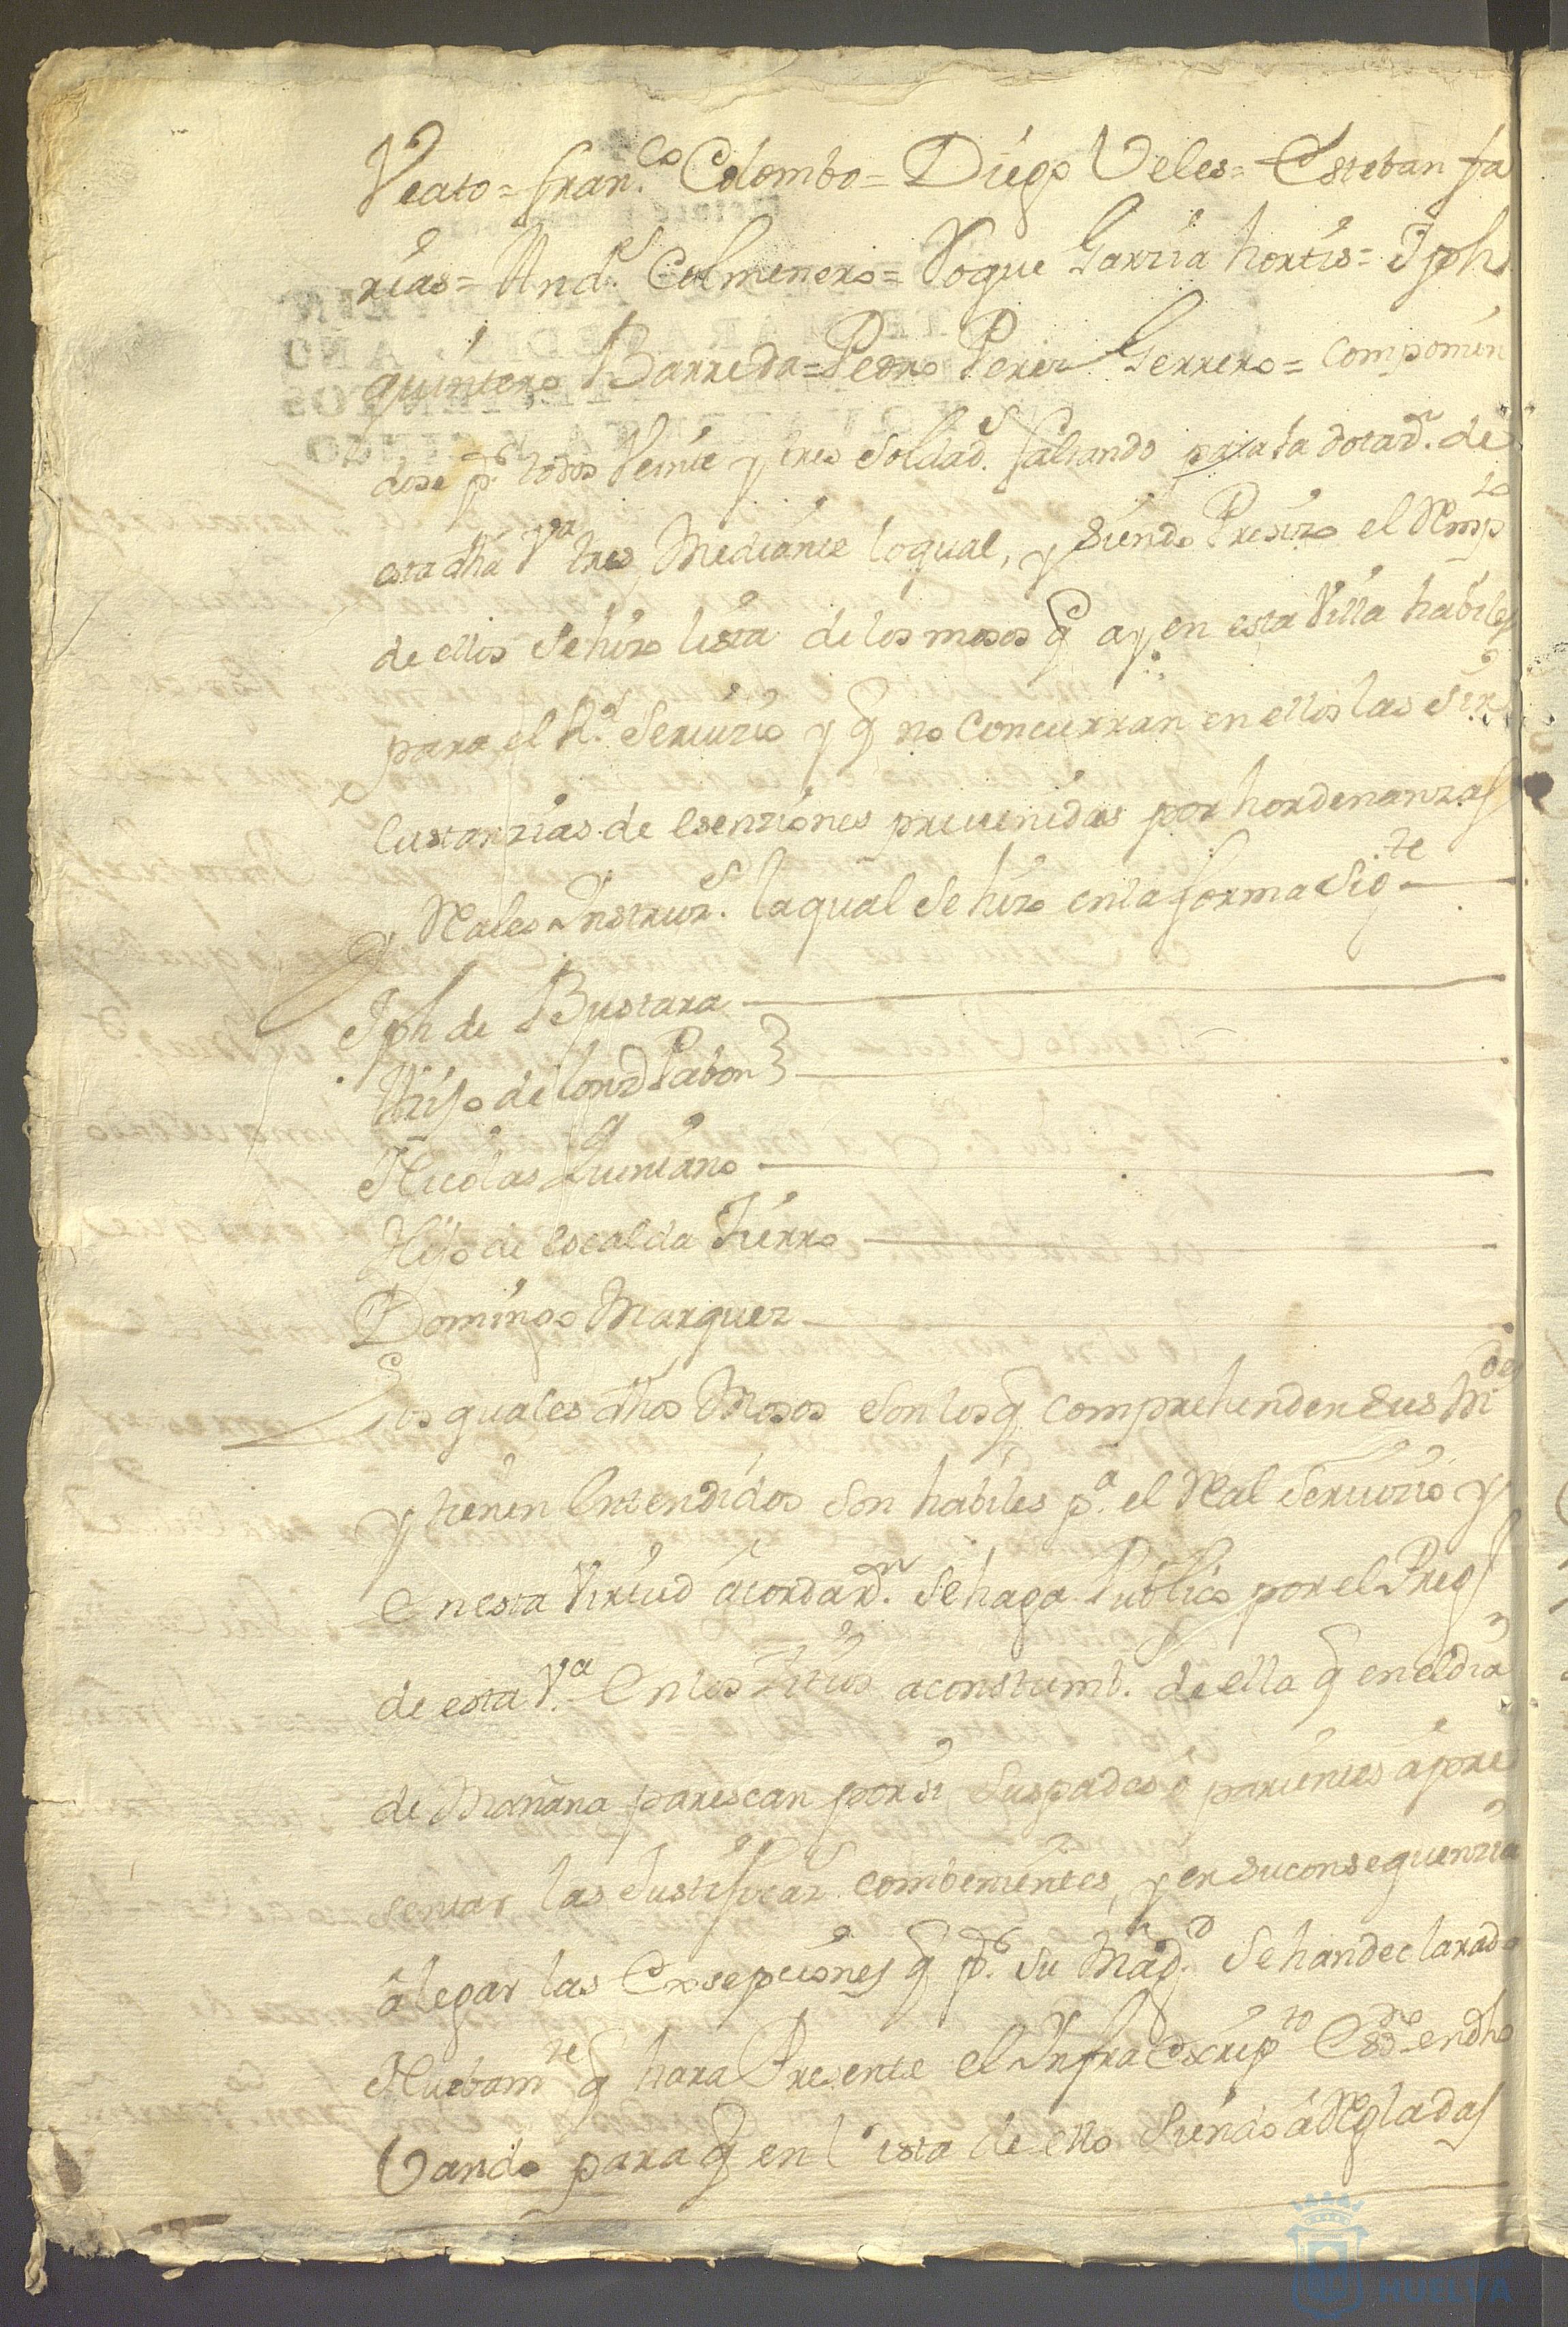 Veato = fran.co Colombo = Diego Veles = Esteban fa
rias = And.s Colmenero = Roque Garzia hortis = Jph
quintero Barreda = Pedro Perez Gerrero = componien
dose p.r todos Veinte y tres Soldad.s faltando para la dotaz.n de
esta dha V.a tres, Mediante loqual, y siendo Presizo el Rmp.zo
de ellos se hizo lista de los mosos q ay en esta Villa habiles
para el R.l Seruizio y q no concurran en ellos las sir
custanzias de esenziones preuenidas por hordenanzas
y Reales Instruz.s laqual se hizo en la forma sig.te
Jph de Bustara
Hijo de Pabon
Nicolas Quintano
Hijo de escalda Fierro
Domingo Marquez
Los quales dhos Mosos son los q comprehenden sus M.des
y tienen entendidos son habiles p.a el Real Seruizio y
en esta Virtud acordar.n se haga Publico por el Preg.n
de esta V.a en los Sitios aconstumb. de ella q en el dia
de Mañana parescan por si sus padres o parientes a pre
sentar las Justificaz.s combenientes, y en su consequenzia
alegar las Exsepciones q p.r su Mag.d se han declarado
Nuebam.te q hara Presente el Infraescrip.to Es.no en dho
Vando para q en Vista de ello siendo aRegladas
HUELVA